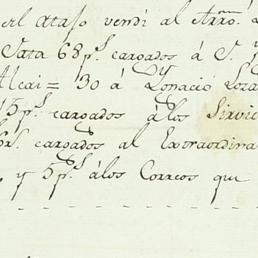 el Atajo vendí al Arrō.
Tata 68 p.s cargados á S.
Alcai = 30 á Dn Ignacio Loza
5 p.s cargados álos Sirvie
rs. cargados al Extraordina
y 5 p.s álos Correos que